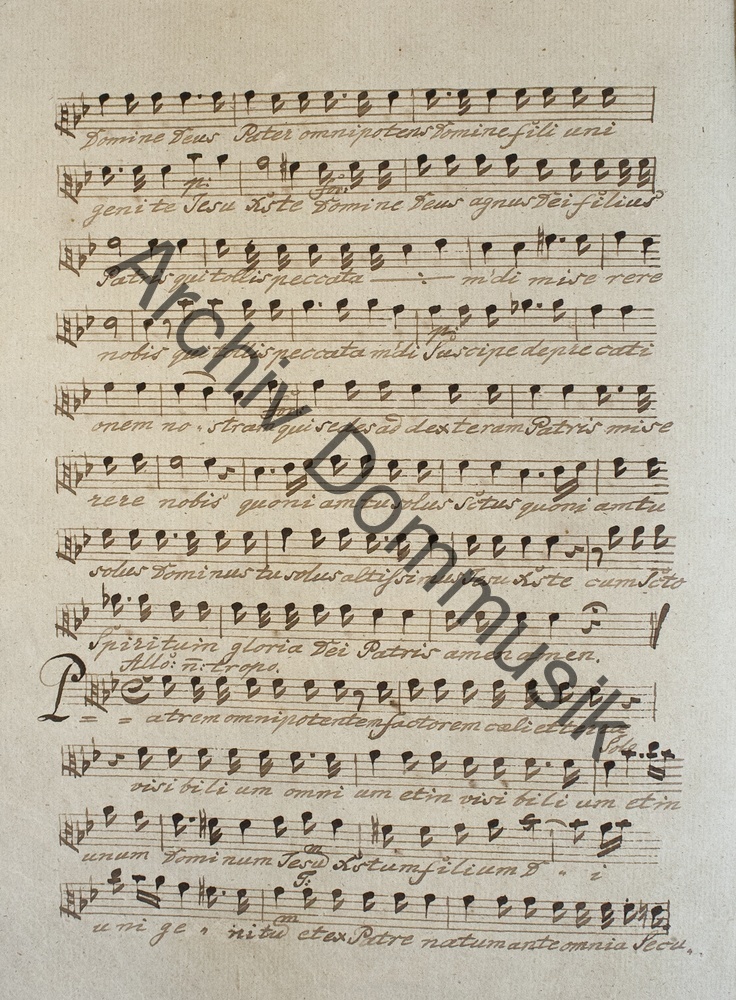 Domine Deus Pater omnipotens Domine fili uni
genite Jesu Xste Domine Deus agnus Dei filius
p: for:
Patris qui tollis peccata m̄di mise rere
nobis qui tollis peccata m̄di Suscipe depre cati
p:
onem no „ stram qui sedes ad dexteram Patris mise
rere nobis quoni am tu solus Sctus quoni am tu
solus Dominus tu solus altissimus Jesu Xste cum Scto
Spiritu in gloria Dei Patris amen amen.
Allo: n̄: tropo.
P = = atrem omnipotentem factorem cœli et terra
Solo
visi bili um omni um et in visi bili um et in
unum Dominum Jesum Xstum filium D „ i
T:
uni ge „ nitum et ex Patre natum ante omnia Secu„
Archiv Dommusik